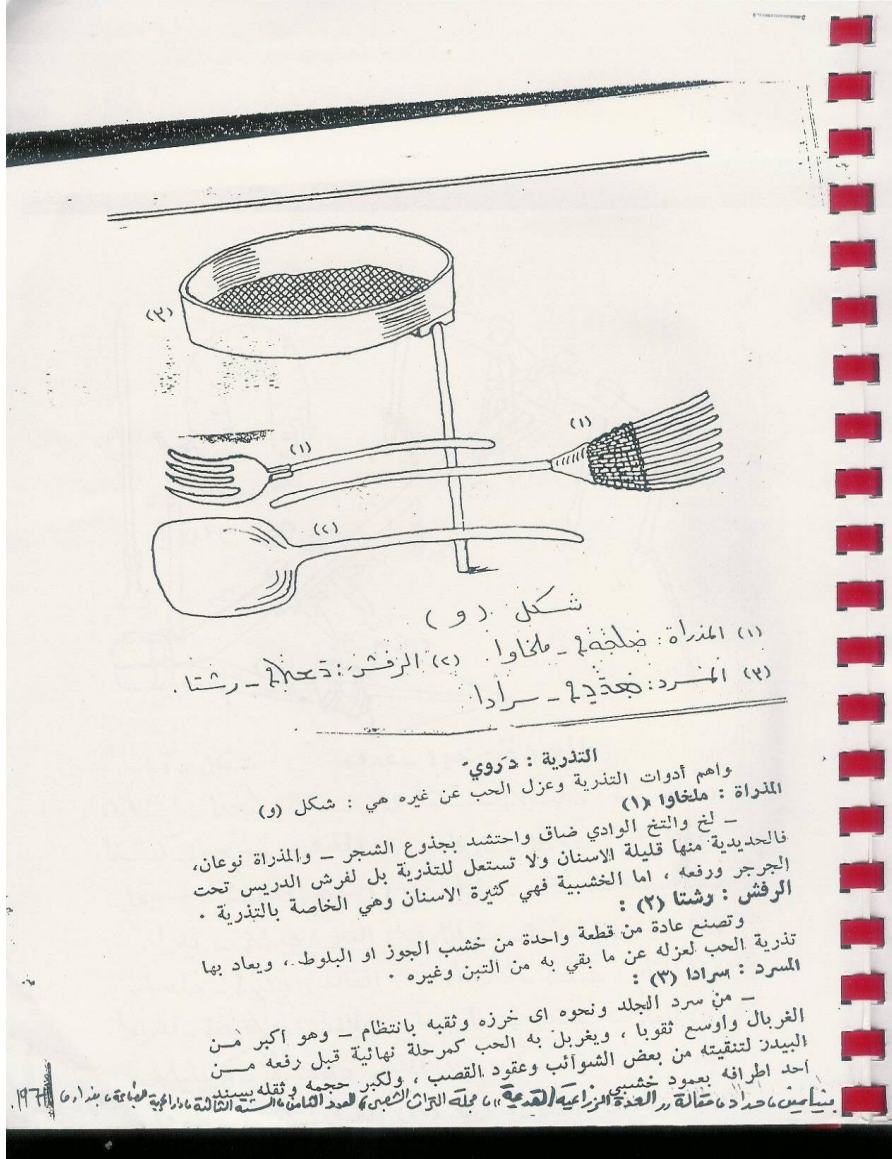 (٣)
(١)
(١)
(٢)
شكل (و)
(١) المذراة: ܡܠܚܘܐ - ملخاوا. (٢) الرفش: ܪܫܬܐ - رشتا.
(٣) المسرد: ܣܪܕܐ - سرادا
التذرية : دروي
واهم أدوات التذرية وعزل الحب عن غيره هي : شكل (و)
المذراة : ملخاوا (١)
– لخ والتخ الوادي ضاق واحتشد بجذوع الشجر – والمذراة نوعان،
فالحديدية منها قليلة الاسنان ولا تستعل للتذرية بل لفرش الدريس تحت
الجرجر ورفعه ، اما الخشبية فهي كثيرة الاسنان وهي الخاصة بالتذرية .
الرفش : رشتا (٢) :
وتصنع عادة من قطعة واحدة من خشب الجوز او البلوط ، ويعاد بها
تذرية الحب لعزله عن ما بقي به من التبن وغيره .
المسرد : سرادا (٣) :
– من سرد الجلد ونحوه اى خرزه وثقبه بانتظام – وهو اكبر من
الغربال واوسع ثقوبا ، ويغربل به الحب كمرحلة نهائية قبل رفعه من
البيدر لتنقيته من بعض الشوائب وعقود القصب ، ولكبر حجمه وثقله يسند
احد اطرافه بعمود خشبي
بنيامين حداد، مقالة "العدة الزراعية القديمة"، مجلة التراث الشعبي، العدد الثامن، السنة الثالثة، دار الحرية للطباعة، بغداد،